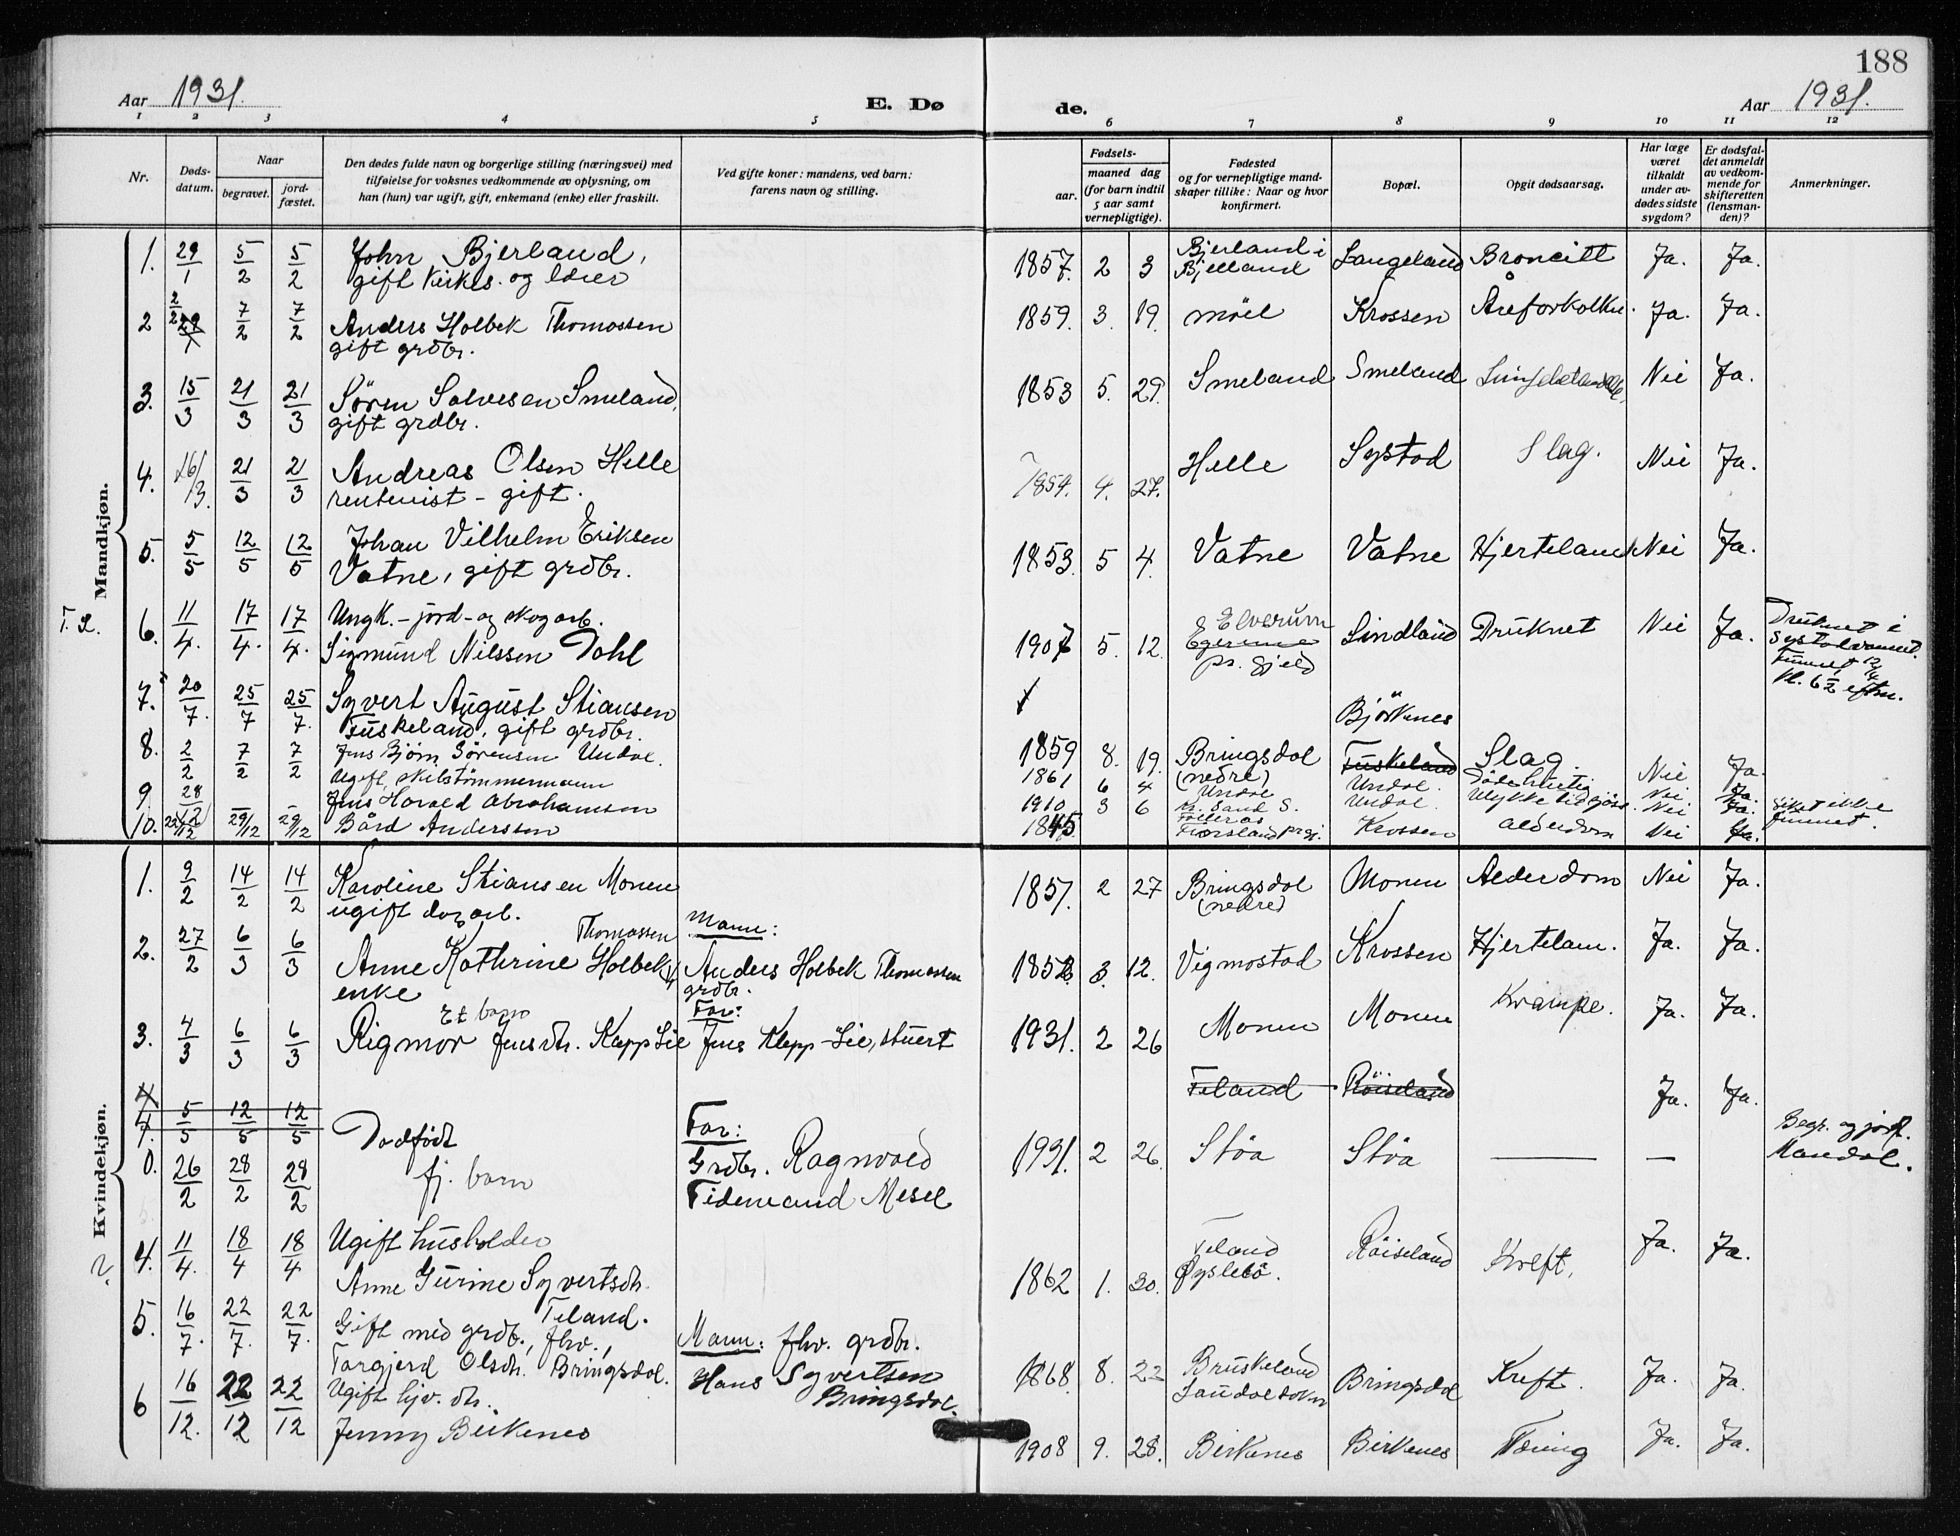 188
Aar 1931. E. Dø de. Aar 1931.
1 2 3 4 5 6 7 8 9 10 11 12
Nr. Døds-datum. Naar begravet. jord-fæstet. Den dødes fulde navn og borgerlige stilling (næringsvei) med tilføielse for voksnes vedkommende av oplysning, om han (hun) var ugift, gift, enkemand (enke) eller fraskilt. Ved gifte koner: mandens, ved barn: farens navn og stilling. Fødsels- aar. maaned dag (for barn indtil 5 aar samt vernepligtige). Fødested og for vernepligtige mand-skaper tillike: Naar og hvor konfirmert. Bopæl. Opgit dødsaarsag. Har læge været tilkaldt under av-dødes sidste sygdom? Er dødsfal-det anmeldt av vedkom-mende for skifteretten (lensman-den)? Anmerkninger.
Mandkjøn.
1. 29/1 5/2 5/2 John Bjerland, gift kirkes. og lærer 1857. 2 3 Bjerland i Bjelland Langeland Broncitt Ja. Ja.
2 2/2 29/1 7/2 7/2 Anders Holbek Thomassen gift grdbr. 1859. 3. 19. Møel Krossen Åreforkalkn. Ja. Ja.
3. 15/3 21/3 21/3 Søren Salvesen Smeland, gift grdbr. 1853 5. 29. Smeland Smeland Nei Ja.
4. 16/3. 21/3 21/3 Andreas Olsen Helle rentenist - gift. 1854. 4. 27. Helle Systad Slag. Nei Ja.
5. 5/5 12/5 12/5 Johan Vilhelm Eriksen Vatne, gift grdbr. 1853. 5 4. Vatne Vatne Hjertelam Nei Ja.
T. 2. 6. 11/4. 17/4. 17/4. Ungk. - jord- og skogarb. Sigmund Nilssen Dahl 1907 5. 12. Elverum pr. gjeld Lindland Druknet Nei Ja. Druknet i Systadvannet. Funnet 12/4 kl. 6½ eftm.
7. 20/7. 25/7 25/7. Syvert August Stiansen Fuskeland, gift grdbr. 1859 8. 19. Bringsdal (nedre) Bjørkenes Fuskeland Slag. Nei Ja.
8. 2/2 7/2 7/2 Jens Bjørn Sørensen Undal. Ugift, skibstømmermann 1861 6 4 Undal Undal. Nei Ja.
9 28/12 – – Jens Harald Abrahamsen 1910 3 6 Kr. Sand S. Undal. Ulykke tidsjøs. Nei Ja. Liket ikke funnet.
10. 23/12 29/12 29/12 Bård Anderssen 1845 Krossen Alderdom Nei Ja.
Kvindekjøn.
1. 9/2 14/2 14/2 Karoline Stiansen Monen ugift dagarb. 1857. 2 27 Bringsdal (nedre) Monen Alderdom Nei Ja.
2. 27/2 6/3 6/3 Anne Kathrine Thomassen Holbek enke Mann: Anders Holbek Thomassen grdbr. 1852 3. 12. Vigmostad Krossen Hjertelam. Ja. Ja.
3. 4/3 6/3 6/3 Et barn Rigmor Jensdtr. Kapp Lie Far: Jens Klepp-Lie, stuert 1931. 2 26 Monen Monen Krampe. Ja. Ja.
4. 5/5 12/5 12/5 Feland Røiseland Ja. Ja.
0. 26/2 28/2 28/2 Dødfødt pj. barn Far: Grdbr. Ragnvald Tidemand Mesel 1931. 2 26. Støa Støa — — Begr. og jordf. Mandal.
4. 11/4. 18/4 18/4 Ugift husholder Anne Gurine Syvertsdtr. Feland. 1862 1. 30. Feland Øyslebø. Røiseland Kreft. Ja. Ja.
5. 16/7. 22/7. 22/7. Gift med grdbr., fhv., Targjerd Olsdtr. Bringsdal. Mann: fhv. grdbr. Hans Syvertsen Bringsdal. 1868. 8. 22 Bruskeland Laudal sokn Bringsdal Kreft. Ja. Ja.
6 16/12. 22/12 22/12 Ugift hjv. dtr. Jenny Birkenes 1908 9. 28. Birkenes Birkenes Tæring Ja. Ja.